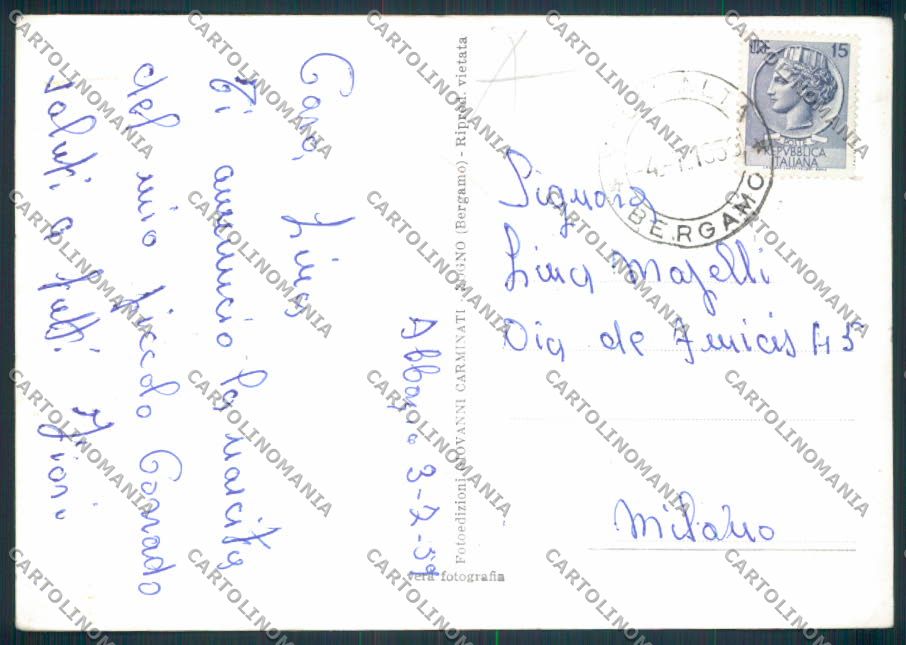 Abbazia 3-2-59
Cara Lina
Ti annuncio la nascita
del mio piccolo Corrado
Saluti a tutti
Fotoedizioni GIOVANNI CARMINATI - ZOGNO (Bergamo) - Riprod. vietata
vera fotografia
LIRE 15
POSTE
REPVBBLICA
ITALIANA
BERGAMO
Signora
Lina Majelli
Via de Amicis 45
Milano
CARTOLINOMANIA